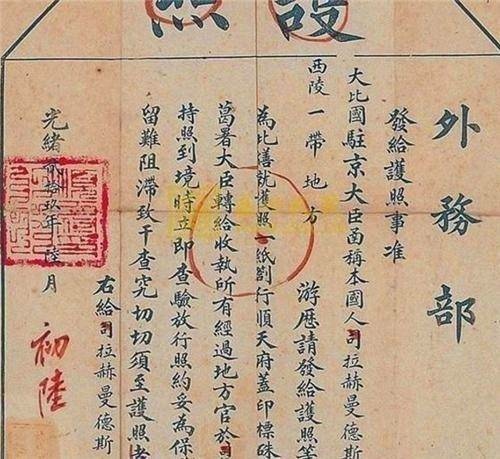 護照
外務部
發給護照事准
大比國駐京大臣函稱本國人司拉赫曼德斯
西陵一帶地方
游歷請發給護照等
為此繕就護照一紙劄行順天府蓋印標硃
葛署大臣轉給收執所有經過地方官於司
持照到境時立即查驗放行照約妥為保
留難阻滯致干查究切切須至護照者
右給司拉赫曼德斯
光緒貳拾玖年陸月
初陸